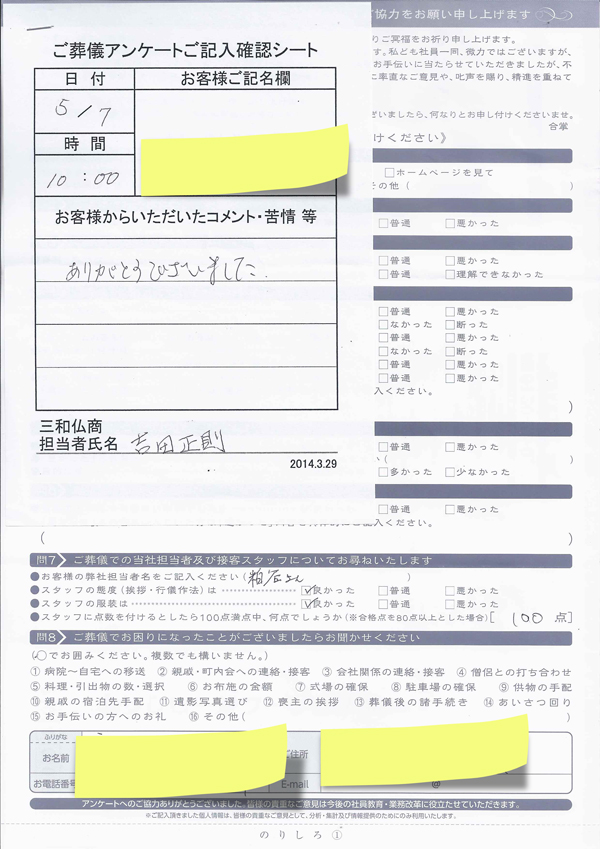 ご協力をお願い申し上げます
ご葬儀アンケートご記入確認シート
日付
お客様ご記名欄
5/7
時間
10:00
お客様からいただいたコメント・苦情 等
ありがとうございました
三和仏商
担当者氏名 吉田正則
2014.3.29
りご冥福をお祈り申し上げます。
す。私ども社員一同、微力ではございますが、
お手伝いに当たらせていただきましたが、不
に率直なご意見や、叱声を賜り、精進を重ねて
ざいましたら、何なりとお申し付けくださいませ。
合掌
けください》
□ホームページを見て
その他( )
□普通 □悪かった
□普通 □悪かった
□普通 □理解できなかった
□普通 □悪かった
□なかった □断った
□普通 □悪かった
□なかった □断った
□普通 □悪かった
□普通 □悪かった
入ください。
)
□普通 □悪かった
(
□多かった □少なかった
□普通 □悪かった
入ください。
( )
問7 ご葬儀での当社担当者及び接客スタッフについてお尋ねいたします
●お客様の弊社担当者名をご記入ください( さん )
●スタッフの態度(挨拶・行儀作法)は ☑良かった □普通 □悪かった
●スタッフの服装は ☑良かった □普通 □悪かった
●スタッフに点数を付けるとしたら100点満点中、何点でしょうか(※合格点を80点以上とした場合)[ 100 点]
問8 ご葬儀でお困りになったことがございましたらお聞かせください
(○でお囲みください。複数でも構いません。)
①病院〜自宅への移送 ②親戚・町内会への連絡・接客 ③会社関係の連絡・接客 ④僧侶との打ち合わせ
⑤料理・引出物の数・選択 ⑥お布施の金額 ⑦式場の確保 ⑧駐車場の確保 ⑨供物の手配
⑩親戚の宿泊先手配 ⑪遺影写真選び ⑫喪主の挨拶 ⑬葬儀後の諸手続き ⑭あいさつ回り
⑮お手伝いの方へのお礼 ⑯その他( )
ふりがな
お名前
ご住所
お電話番号
E-mail
@
アンケートへのご協力ありがとうございました。皆様の貴重なご意見は今後の社員教育・業務改革に役立たせていただきます。
※ご記入頂きました個人情報は、皆様の貴重なご意見として、分析・集計及び情報提供のためにのみ利用いたします。
のりしろ①